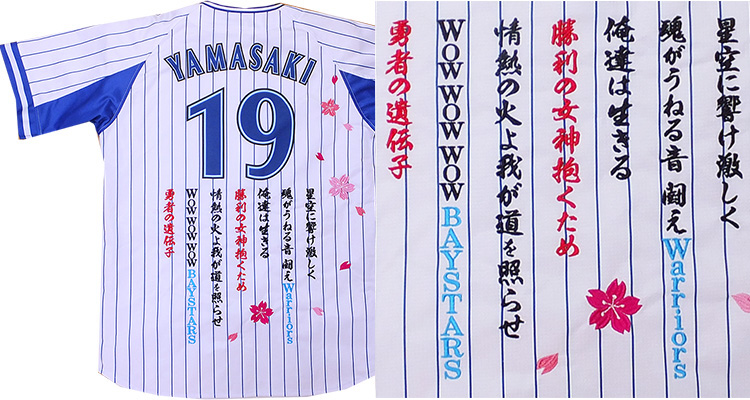 YAMASAKI
19
星空に響け激しく
魂がうねる音 闘えWarriors
俺達は生きる
勝利の女神抱くため
情熱の火よ我が道を照らせ
WOW WOW WOW BAYSTARS
勇者の遺伝子
星空に響け激しく
魂がうねる音 闘えWarriors
俺達は生きる
勝利の女神抱くため
情熱の火よ我が道を照らせ
WOW WOW WOW BAYSTARS
勇者の遺伝子